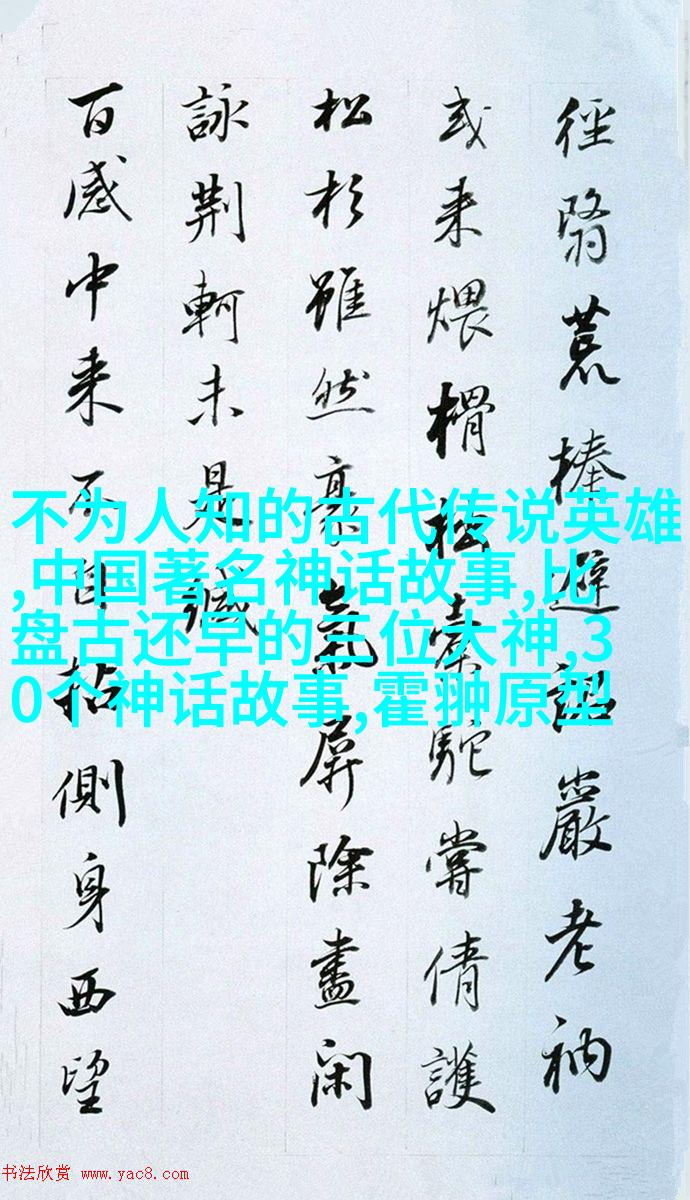 徑翳荒榛避詔巖老衲
或来煨榾柮橐駝嘗倩護
松杉雖然豪氣屏除盡閑
詠荆軻未是諴
百感中来不自拈側身西望
不为人知的古代传说英雄
,中国著名神话故事,比
盘古还早的三位大神,3
0个神话故事,霍翀原型
书法欣赏 www.yac8.com